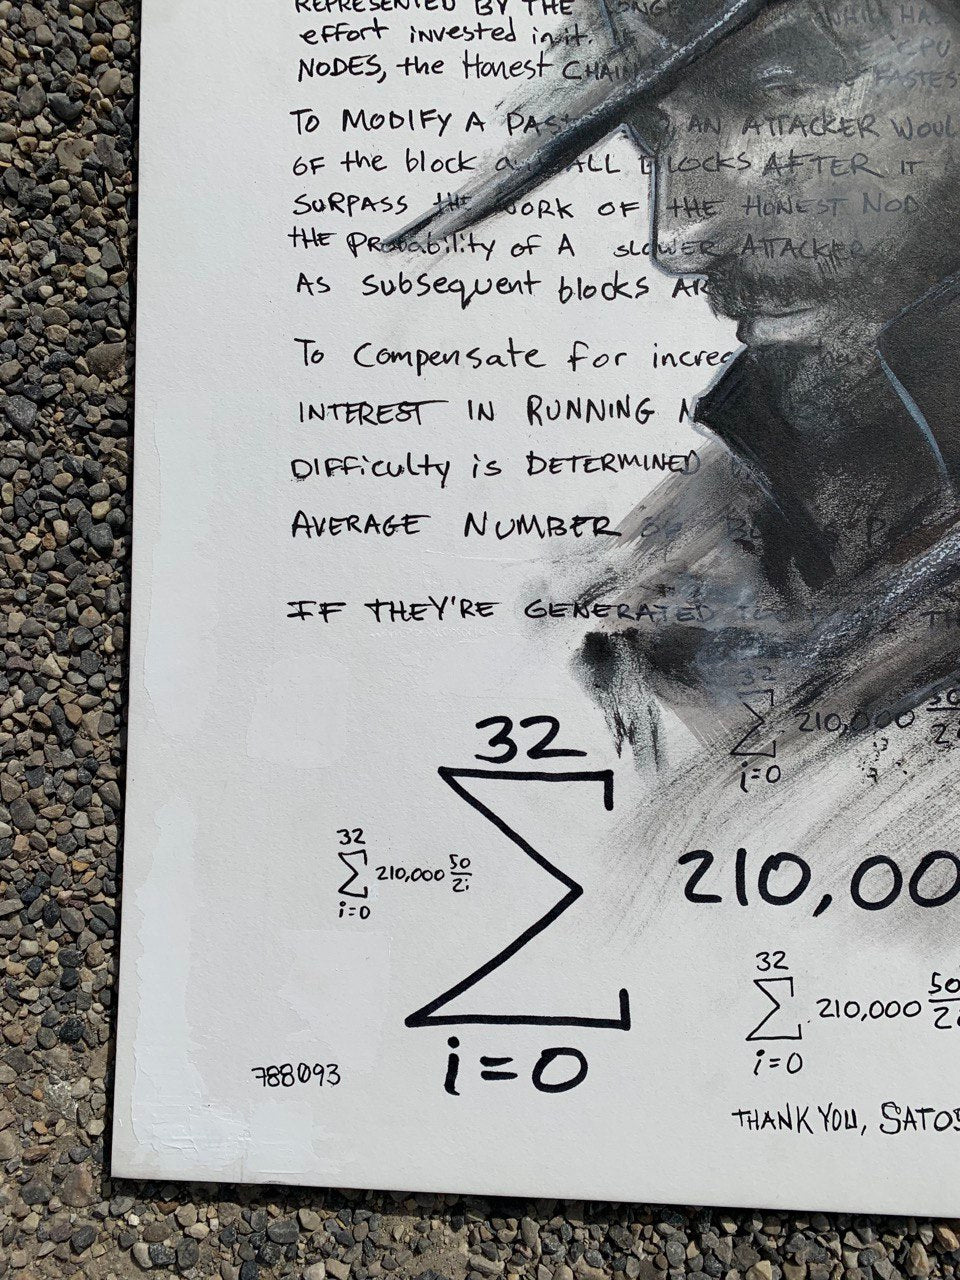 REPRESENTED BY THE
effort invested in it.
CPU
NODES, the Honest CHAIN FASTEST
To MODIFY A PAST AN ATTACKER WOUL
OF the block ALL BLOCKS AFTER IT
SURPASS THE WORK OF THE HONEST NOD
THE Probability of A SLOWER ATTACKER
As subsequent blocks ARE
To Compensate for increa
INTEREST IN RUNNING N
Difficulty is DETERMINED
AVERAGE NUMBER
IF THEY'RE GENERATED
32
Σ 210,000 50/2i
i=0
32
Σ 210,00
i=0
32
Σ 210,000 50/2i
i=0
32
Σ 210,000 50/2i
i=0
788093
THANK YOU, SATOS